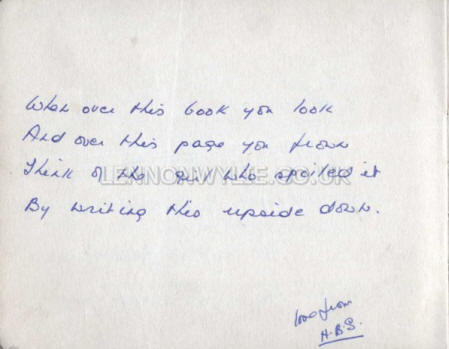 When over this book you look
And over this page you frown
Think of the girl who spoiled it
By writing this upside down.
LENNONWYLIE.CO.UK
love from
H.B.S.